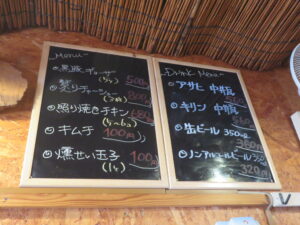 Menu
黒豚ギョーザ 500
(5ケ)
炙りチャーシュー 800
照り焼きチキン 680
(4〜6コ)
キムチ 100円
燻せい玉子 100
(1ケ)
Drink Menu
アサヒ 中瓶
キリン 中瓶
生ビール 350ml
350円
ノンアルコールビール350
320円